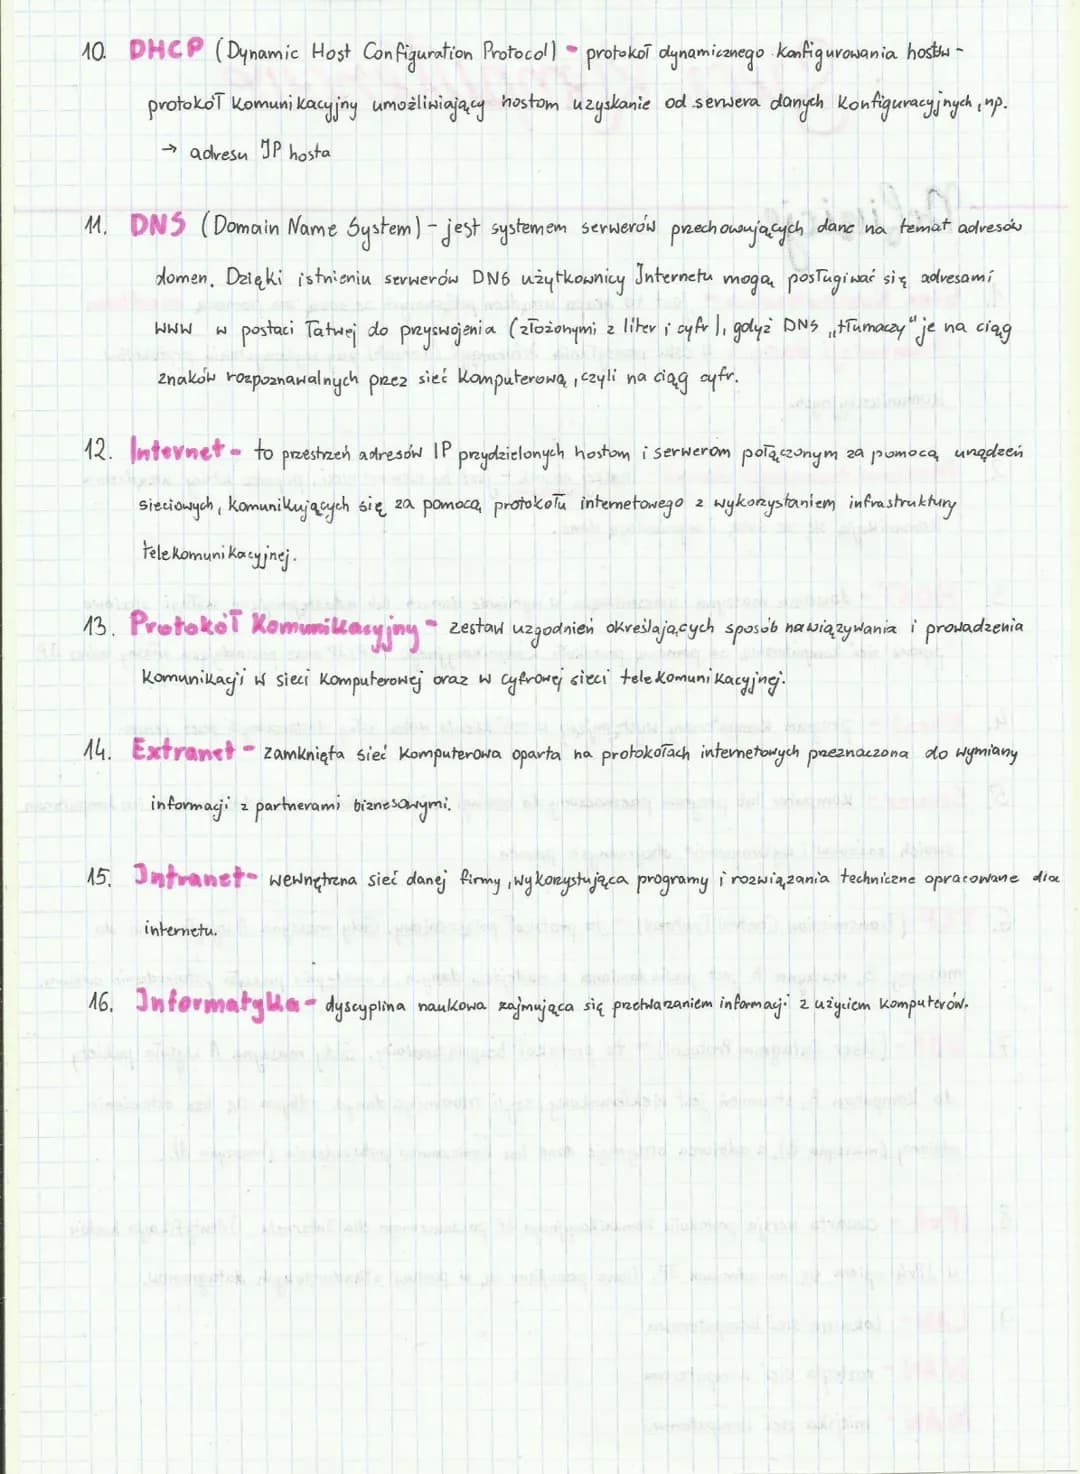 10. DHCP (Dynamic Host Configuration Protocol) - protokół dynamicznego konfigurowania hostów -
protokół komunikacyjny umożliwiający hostom uzyskanie od serwera danych konfiguracyjnych, np.
→ adresu IP hosta
11. DNS (Domain Name System) - jest systemem serwerów przechowujących dane na temat adresów
domen. Dzięki istnieniu serwerów DNS użytkownicy Internetu mogą posługiwać się adresami
WWW w postaci łatwej do przyswojenia (złożonymi z liter i cyfr), gdyż DNS „tłumaczy" je na ciąg
znaków rozpoznawalnych przez sieć komputerową, czyli na ciąg cyfr.
12. Internet - to przestrzeń adresów IP przydzielonych hostom i serwerom połączonym za pomocą urządzeń
sieciowych, komunikujących się za pomocą protokołu internetowego z wykorzystaniem infrastruktury
telekomunikacyjnej.
13. Protokół Komunikacyjny - zestaw uzgodnień określających sposób nawiązywania i prowadzenia
komunikacji w sieci komputerowej oraz w cyfrowej sieci telekomunikacyjnej.
14. Extranet - zamknięta sieć komputerowa oparta na protokołach internetowych przeznaczona do wymiany
informacji z partnerami biznesowymi.
15. Intranet - wewnętrzna sieć danej firmy, wykorzystująca programy i rozwiązania techniczne opracowane dla
internetu.
16. Informatyka - dyscyplina naukowa zajmująca się przetwarzaniem informacji z użyciem komputerów.